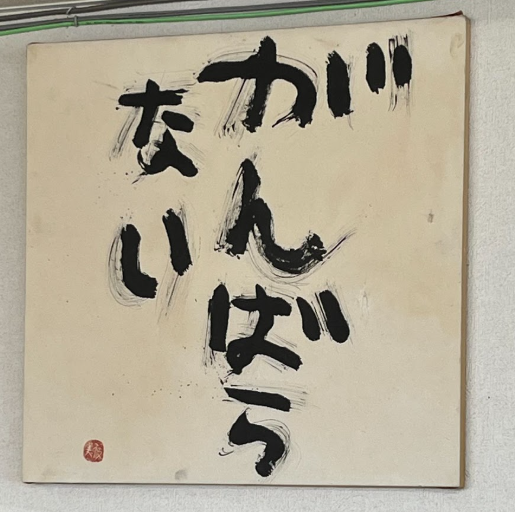 がんばら
ない